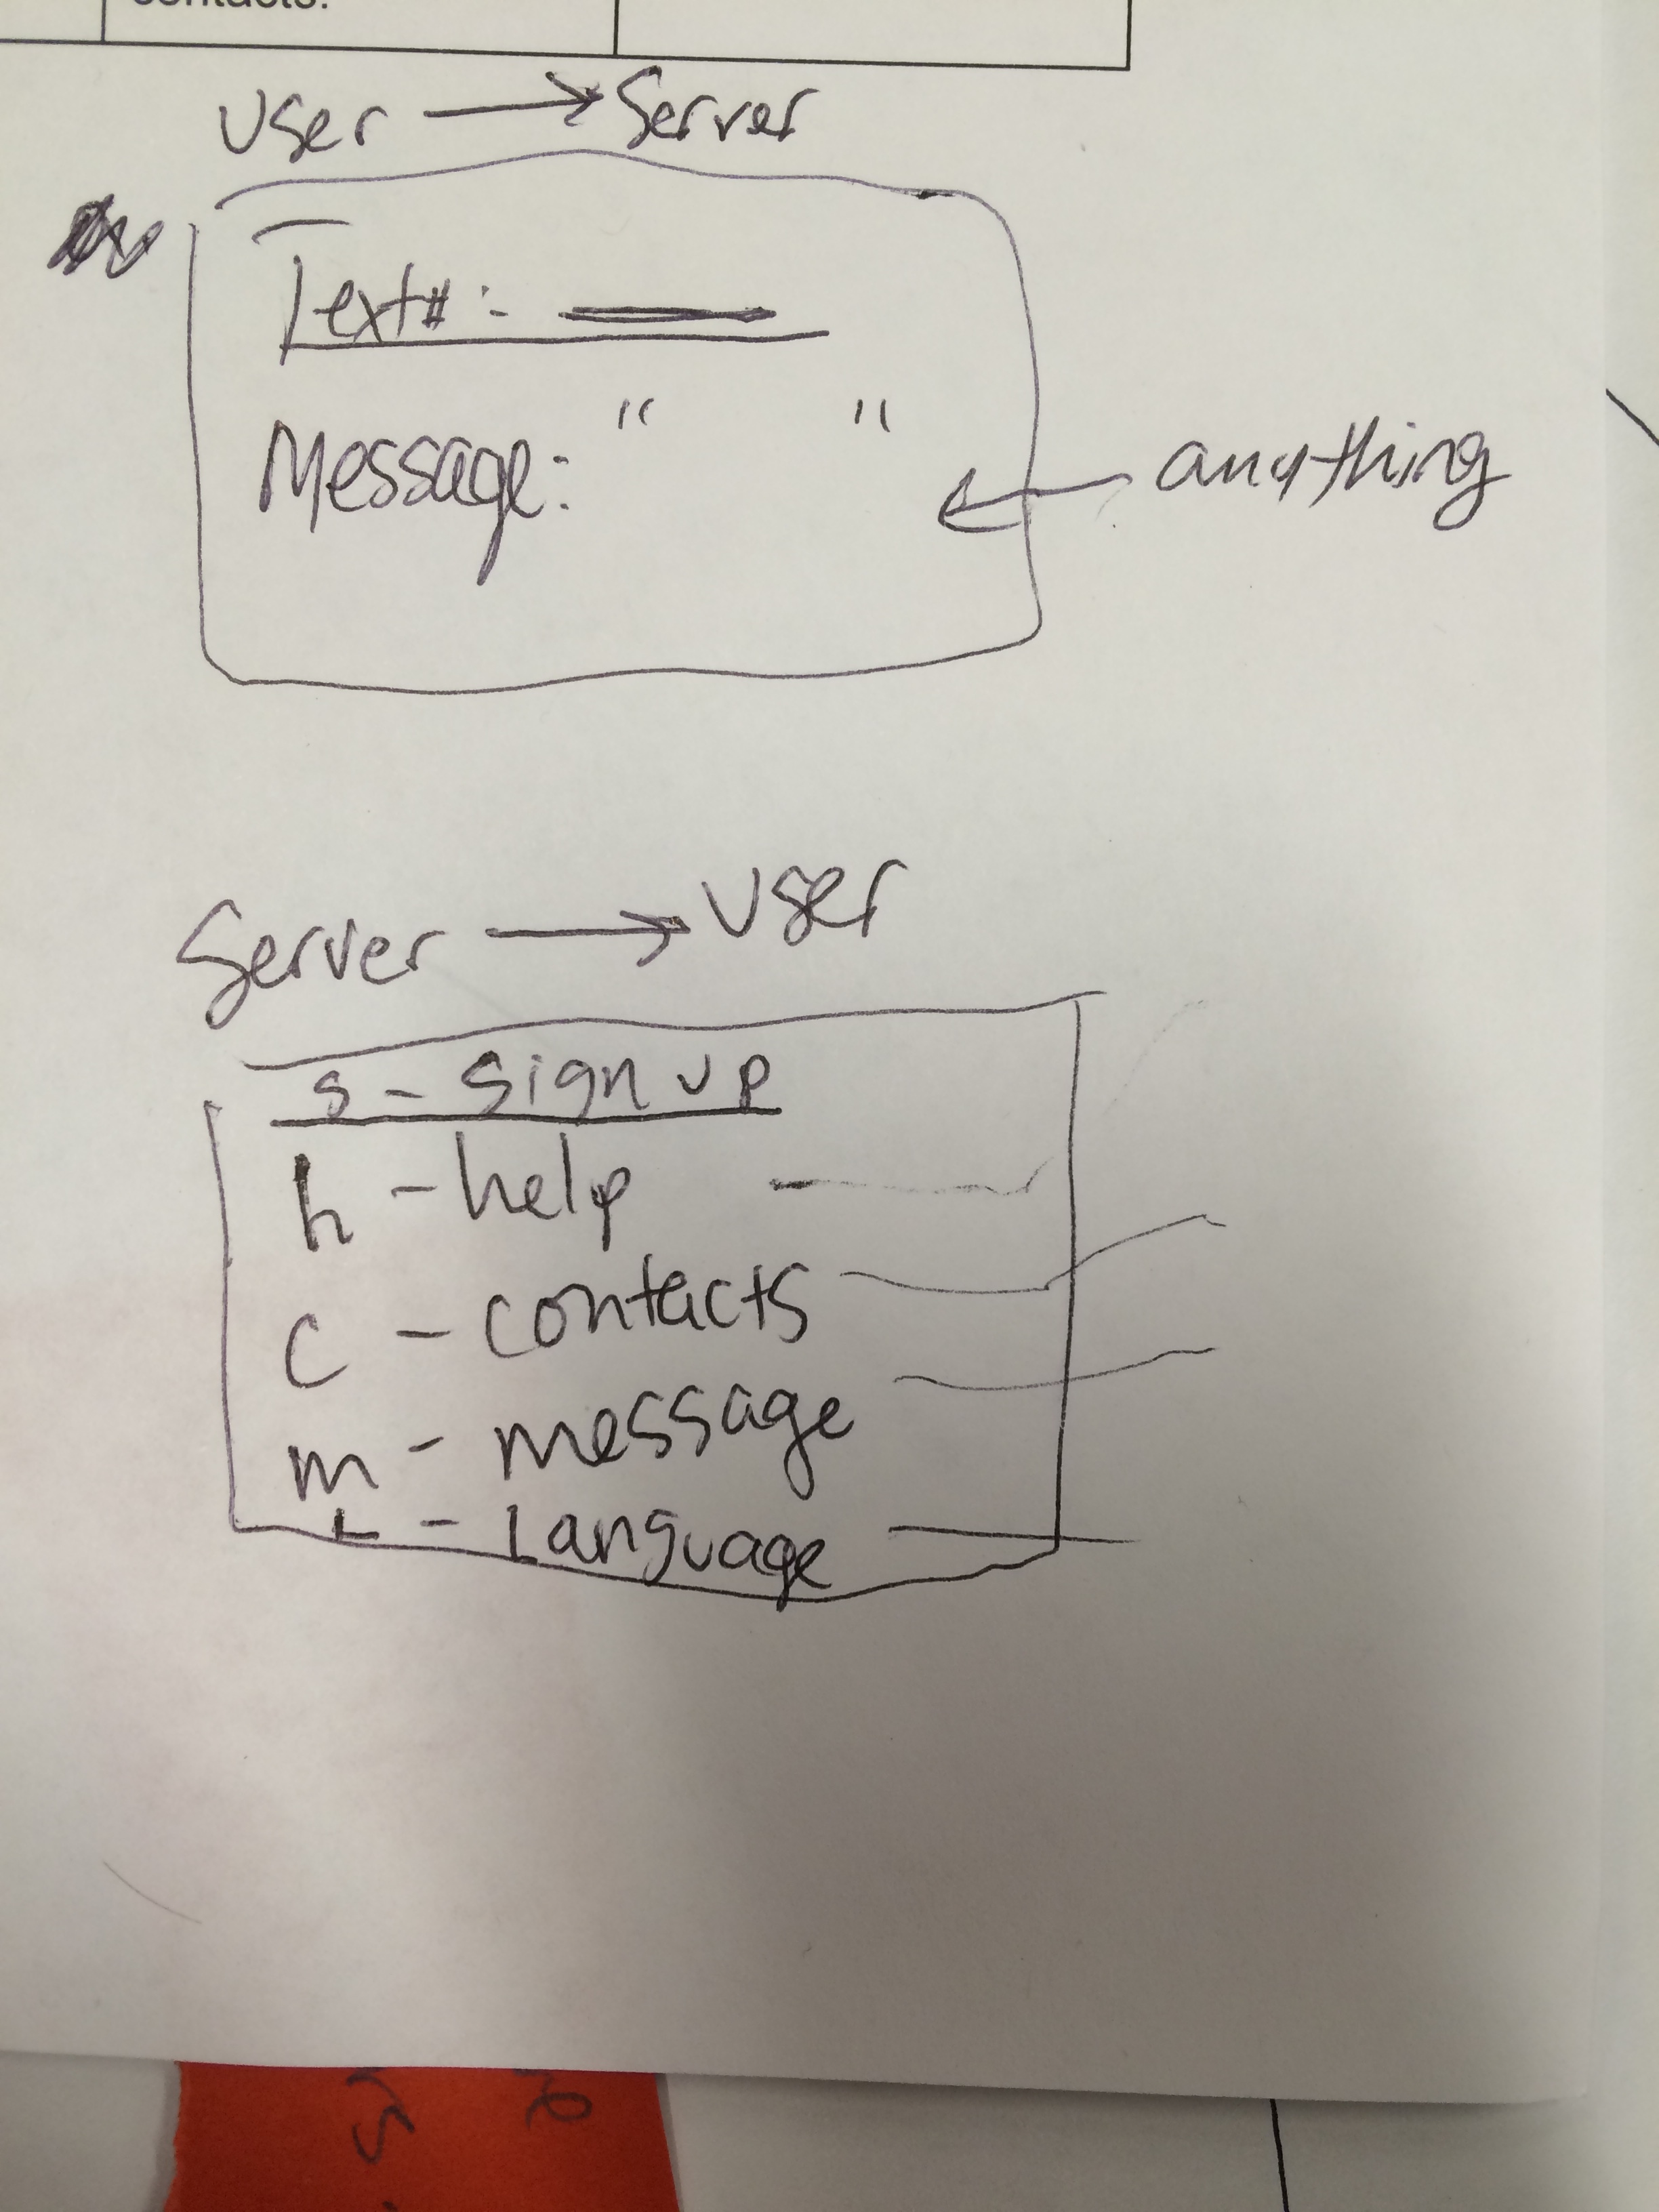 contacts.
User → Server
Text#:
Message: " "
← anything
Server → User
s - sign up
h - help
c - contacts
m - message
L - Language